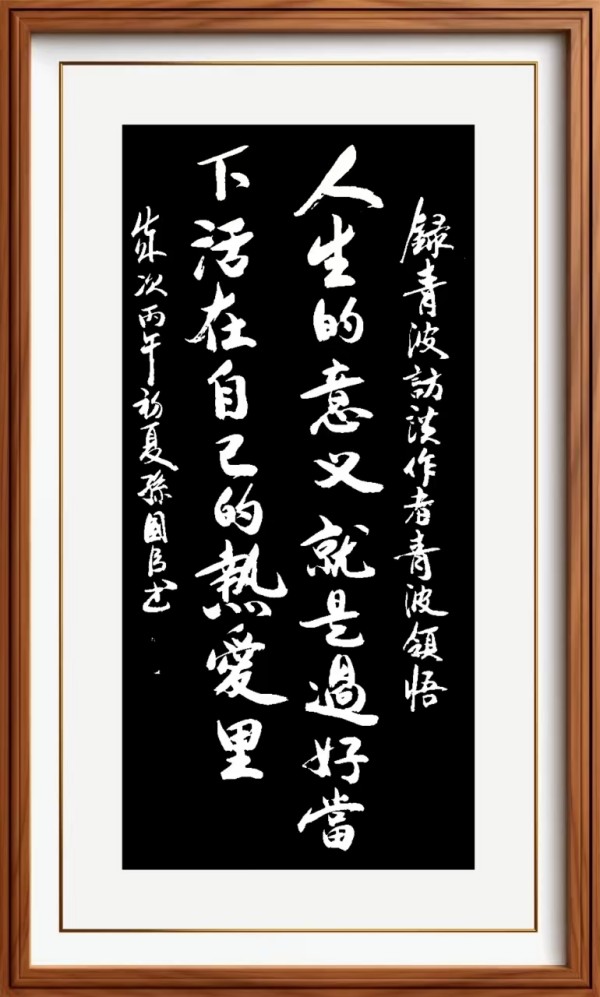 録青波訪談作者青波領悟
人生的意义就是過好當
下活在自己的熱愛里
歲次丙午初夏孫國臣书